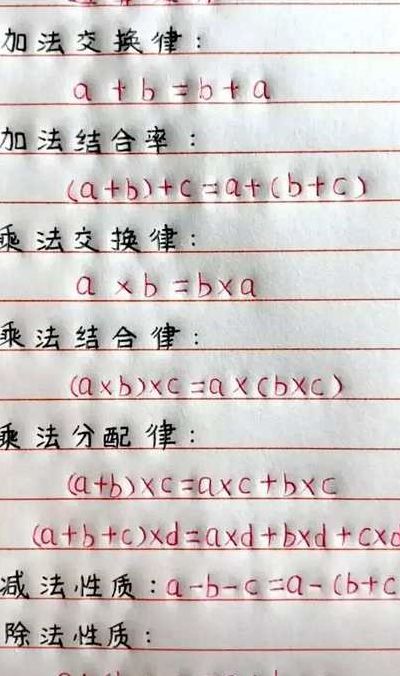 加法交换律：
a+b=b+a
加法结合率：
(a+b)+c=a+(b+c)
乘法交换律：
a×b=b×a
乘法结合律：
(a×b)×c=a×(b×c)
乘法分配律：
(a+b)×c=a×c+b×c
(a+b+c)×d=a×d+b×d+c×d
减法性质：a-b-c=a-(b+c
除法性质：